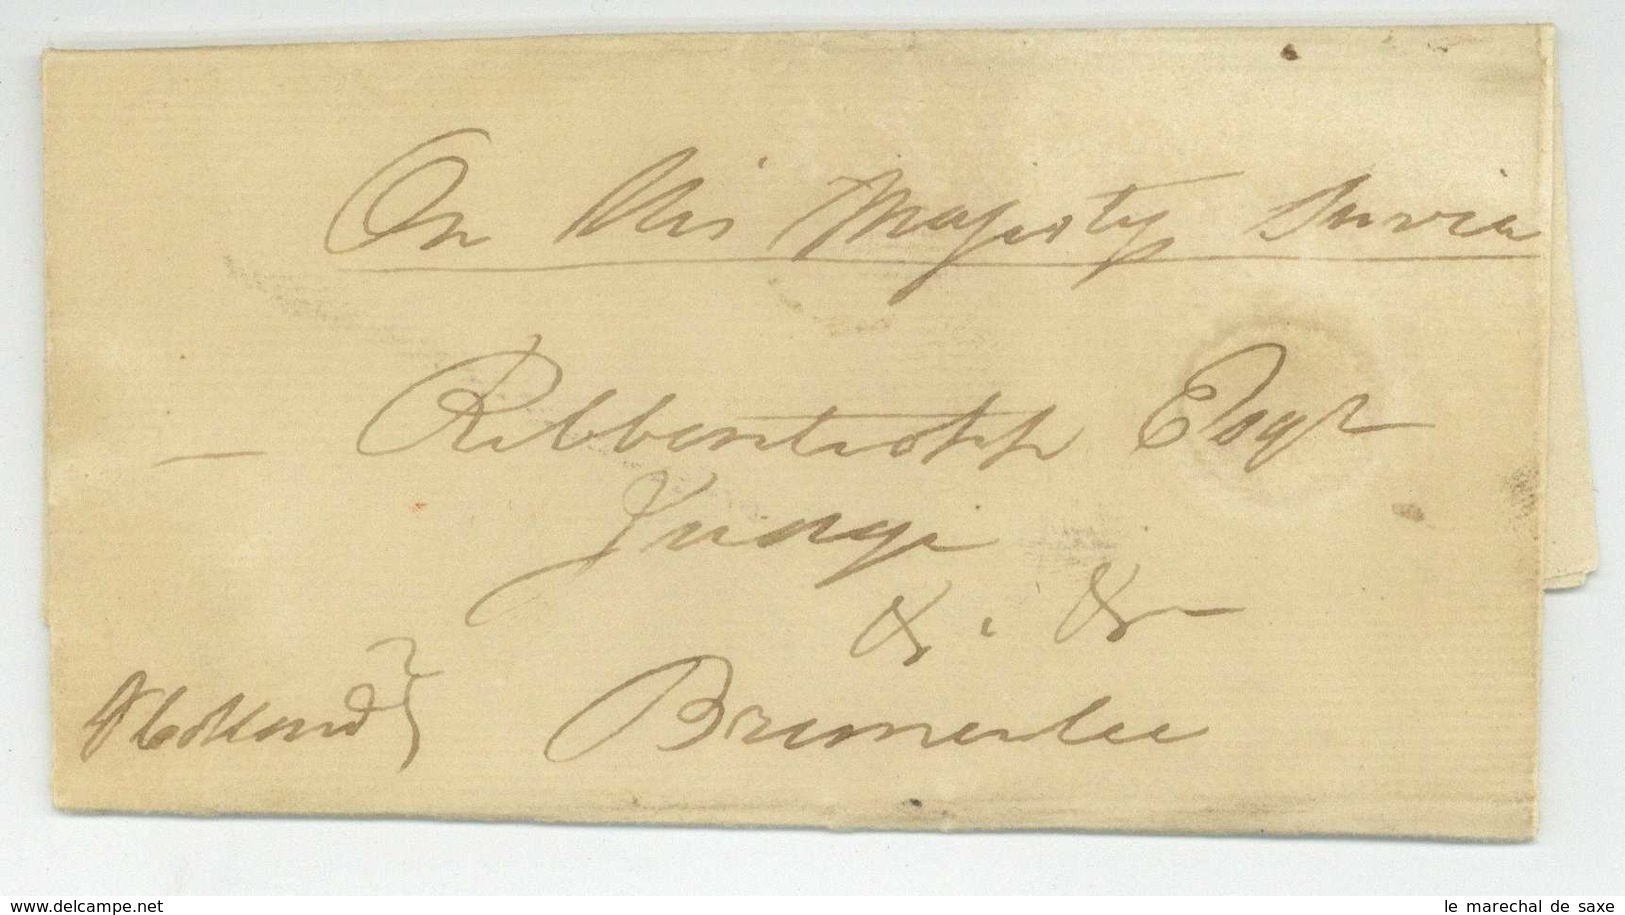 On His Majesty Service
— Ribbentropp Esqr
Judge
&. &
Holland} Bremerlee
www.delcampe.net
le marechal de saxe